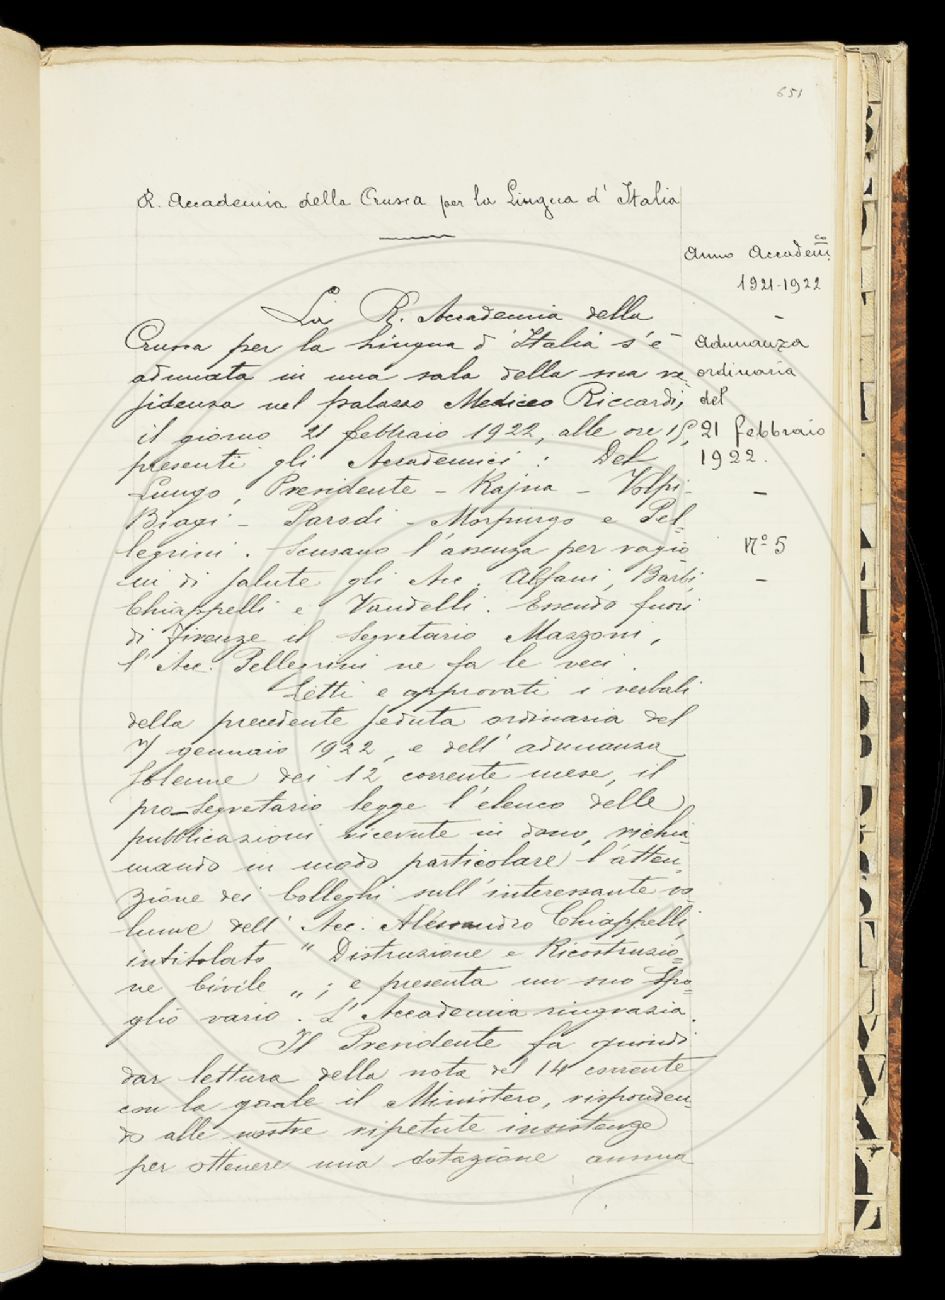 651
R. Accademia della Crusca per la Lingua d' Italia
Anno Accadem.co
1921-1922
Adunanza
ordinaria
del
21 febbraio
1922.
N.o 5
La R. Accademia della
Crusca per la Lingua d' Italia s' è
adunata in una sala della sua re
sidenza nel palazzo Mediceo Riccardi,
il giorno 21 febbraio 1922, alle ore 15,
presenti gli Accademici: Del
Lungo, Presidente - Rajna - Volpi -
Biagi - Parodi - Morpurgo e Pel=
legrini. Scusano l' assenza per ragio
ni di salute gli Acc. Alfani, Barbi,
Chiappelli e Vandelli. Essendo fuori
di Firenze il Segretario Mazzoni,
l' Acc. Pellegrini ne fa le veci.
Letti e approvati i verbali
della precedente seduta ordinaria del
7 gennaio 1922, e dell' adunanza
solenne dei 12 corrente mese, il
pro-Segretario legge l' elenco delle
pubblicazioni ricevute in dono, richia=
mando in modo particolare l' atten=
zione dei Colleghi sull' interessante vo
lume dell' Acc. Alessandro Chiappelli,
intitolato " Distruzione e Ricostruzio=
ne Civile „ ; e presenta un suo Spo=
glio vario. L' Accademia ringrazia.
Il Presidente fa quindi
dar lettura della nota del 14 corrente
con la quale il Ministero, risponden=
do alle nostre ripetute insistenze
per ottenere una dotazione annua